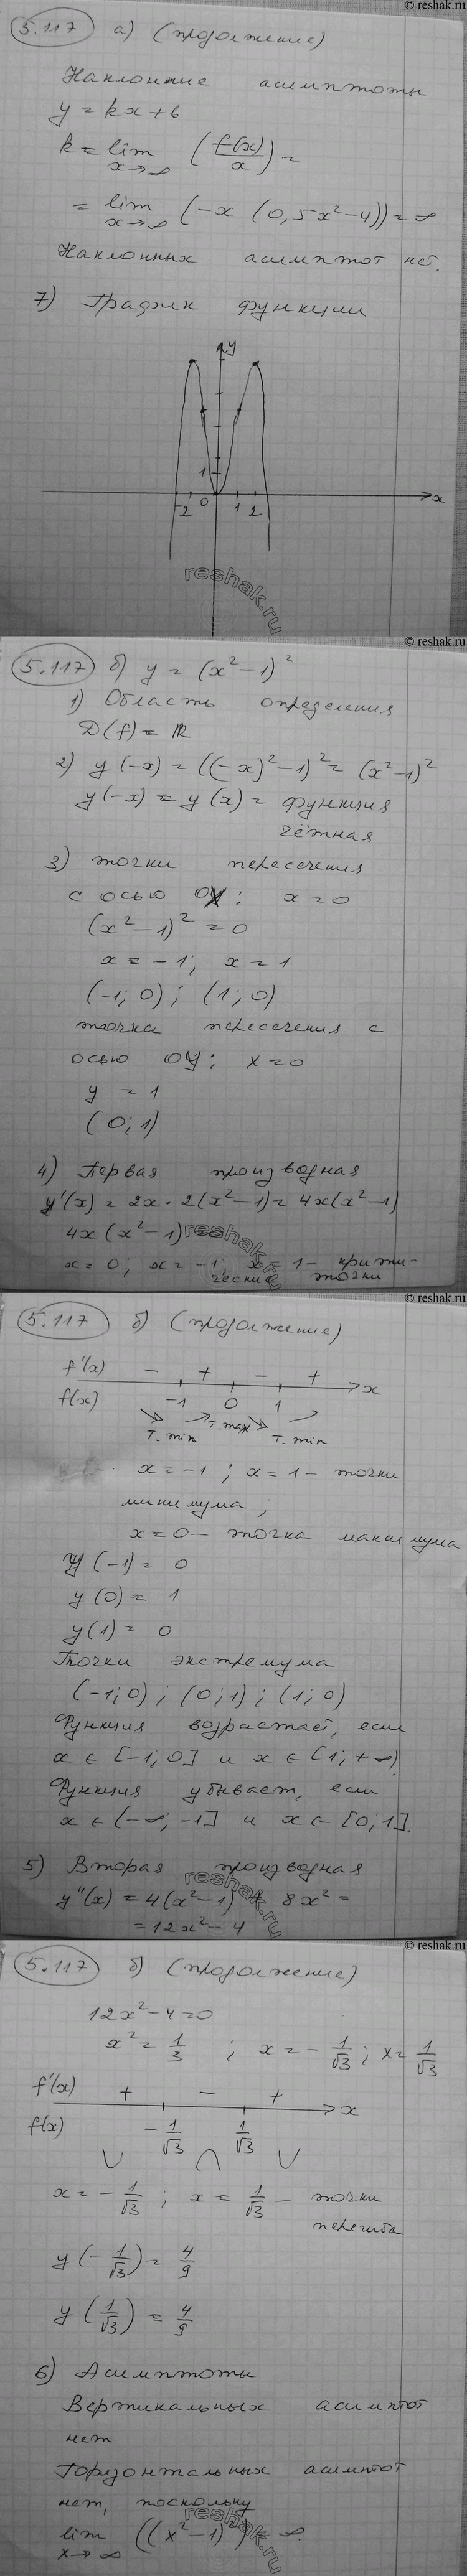 © reshak.ru
5.117 а) (продолжение)
Наклонные асимптоты
y = kx + b
k = lim x→∞ (f(x)/x) =
= lim x→∞ (-x (0,5x² - 4)) = ∞
Наклонных асимптот нет.
7) График функции
y
1
-2 0 1 2 x
reshak.ru
© reshak.ru
5.117 б) y = (x² - 1)²
1) Область определения
D(f) = ℝ
2) y(-x) = ((-x)² - 1)² = (x² - 1)²
y(-x) = y(x) = функция
чётная
3) точки пересечения
с осью OX: x = 0
(x² - 1)² = 0
x = -1; x = 1
(-1; 0); (1; 0)
точка пересечения с
осью OY: x = 0
y = 1
(0; 1)
4) Первая производная
y'(x) = 2x · 2(x² - 1) = 4x(x² - 1)
4x(x² - 1) = 0
x = 0; x = -1; x = 1 - крити-
ческие точки
reshak.ru
© reshak.ru
5.117 б) (продолжение)
f'(x) - + - +
f(x) -1 0 1 x
т. min т. max т. min
x = -1; x = 1 - точки
минимума;
x = 0 - точка максимума
y(-1) = 0
y(0) = 1
y(1) = 0
Точки экстремума
(-1; 0); (0; 1); (1; 0)
Функция возрастает, если
x ∈ [-1; 0] и x ∈ [1; +∞)
Функция убывает, если
x ∈ (-∞; -1] и x ∈ [0; 1].
5) Вторая производная
y''(x) = 4(x² - 1) + 8x² =
= 12x² - 4
reshak.ru
© reshak.ru
5.117 б) (продолжение)
12x² - 4 = 0
x² = 1/3 ; x = -1/√3; x = 1/√3
f'(x) + - + x
f(x) -1/√3 1/√3
x = -1/√3; x = 1/√3 - точки
перегиба
y(-1/√3) = 4/9
y(1/√3) = 4/9
6) Асимптоты
Вертикальных асимптот
нет
Горизонтальных асимптот
нет, поскольку
lim x→∞ ((x² - 1)²) = ∞.
reshak.ru